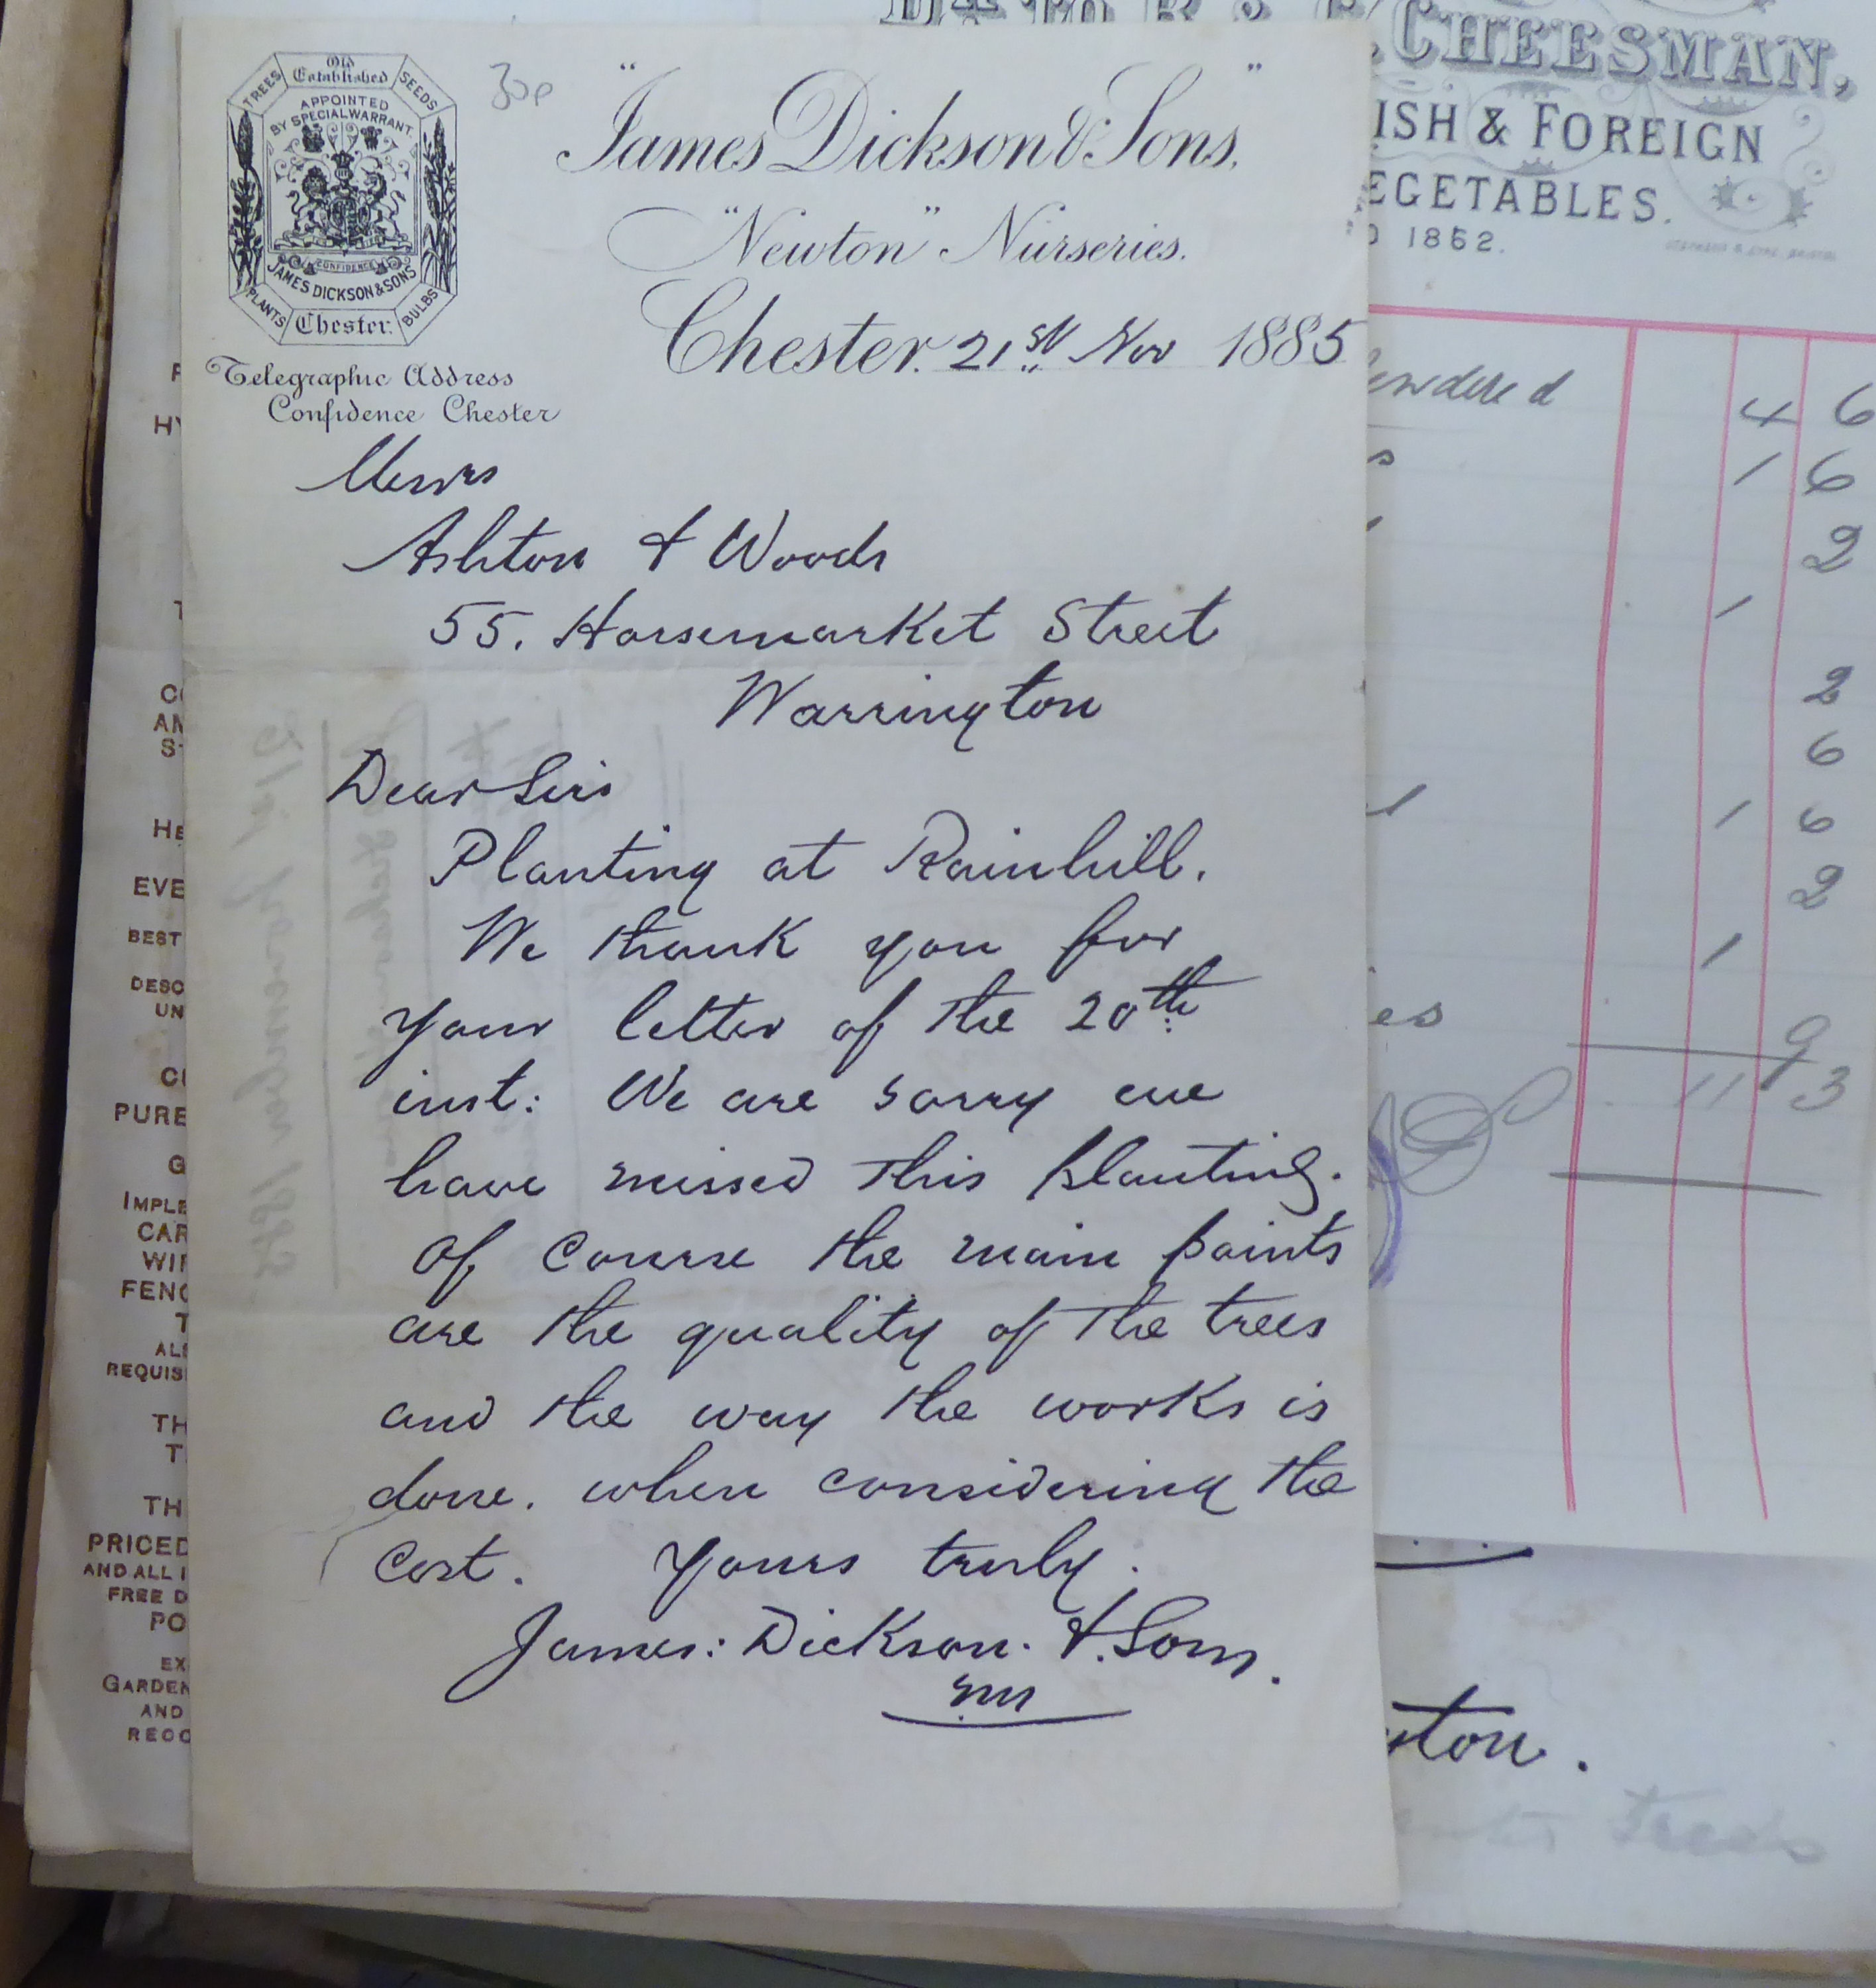 Old
Established
TREES
SEEDS
APPOINTED
BY SPECIAL WARRANT.
CONFIDENCE
JAMES DICKSON & SONS
PLANTS
Chester.
BULBS
Telegraphic Address
Confidence Chester
30p
"James Dickson & Sons,"
"Newton" Nurseries.
Chester. 21st Nov 1885
Messrs
Ashton & Woods
55. Horsemarket Street
Warrington
Dear Sirs
Planting at Rainhill.
We thank you for
your letter of the 20th
inst: We are sorry we
have missed this planting.
Of course the main points
are the quality of the trees
and the way the works is
done. when considering the
Cost. Yours truly.
James: Dickson. & Sons.
CHEESMAN,
ISH & FOREIGN
EGETABLES.
1862.
4 6
1 6
2
1
2
6
1 6
2
1
es
9
11 3
ston.
Trees
HY
CO
AN
ST
HE
EVE
BEST
DESC
UN
PURE
G
IMPLE
CAR
WIR
FENC
T
ALS
REQUIS
TH
T
TH
PRICED
AND ALL I
FREE D
PO
EX
GARDEN
AND
RECO